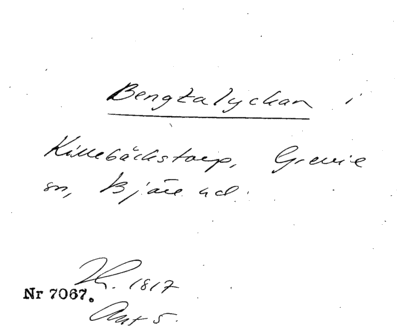 Bengtalyckan i
Killebäckstorp, Grevie
sn, Bjäre hd.
Th. 1817
Nr 7067.
Akt 5.